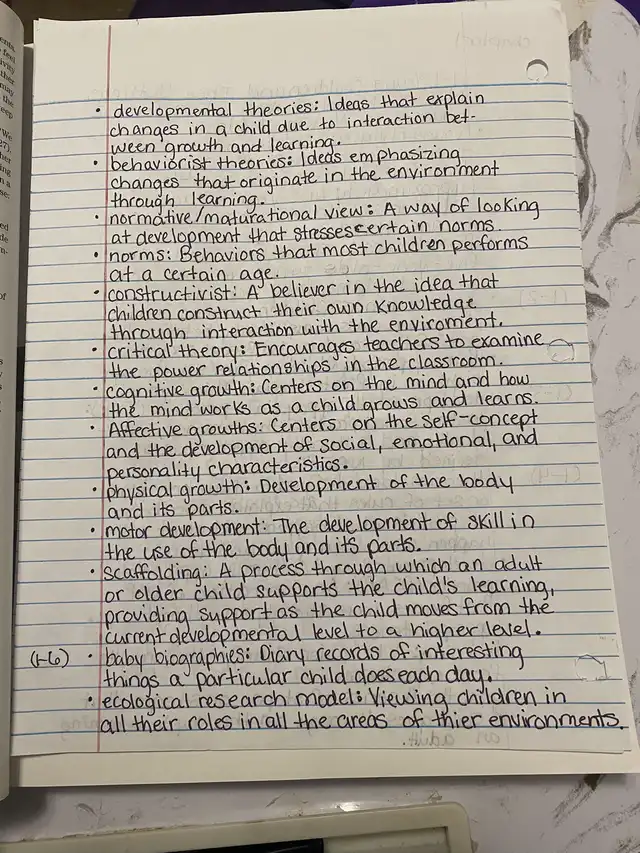 • developmental theories: Ideas that explain
changes in a child due to interaction bet-
ween growth and learning.
• behaviorist theories: Ideas emphasizing
changes that originate in the environment
through learning.
• normative/maturational view: A way of looking
at development that stresses certain norms.
• norms: Behaviors that most children performs
at a certain age.
• constructivist: A believer in the idea that
children construct their own knowledge
through interaction with the enviroment.
• critical theory: Encourages teachers to examine
the power relationships in the classroom.
• cognitive growth: Centers on the mind and how
the mind works as a child grows and learns.
• Affective growths: Centers on the self-concept
and the development of social, emotional, and
personality characteristics.
• physical growth: Development of the body
and its parts.
• motor development: The development of skill in
the use of the body and its parts.
• scaffolding: A process through which an adult
or older child supports the child's learning,
providing support as the child moves from the
current developmental level to a higher level.
(1-6) • baby biographies: Diary records of interesting
things a particular child does each day.
• ecological research model: Viewing children in
all their roles in all the areas of thier environments.